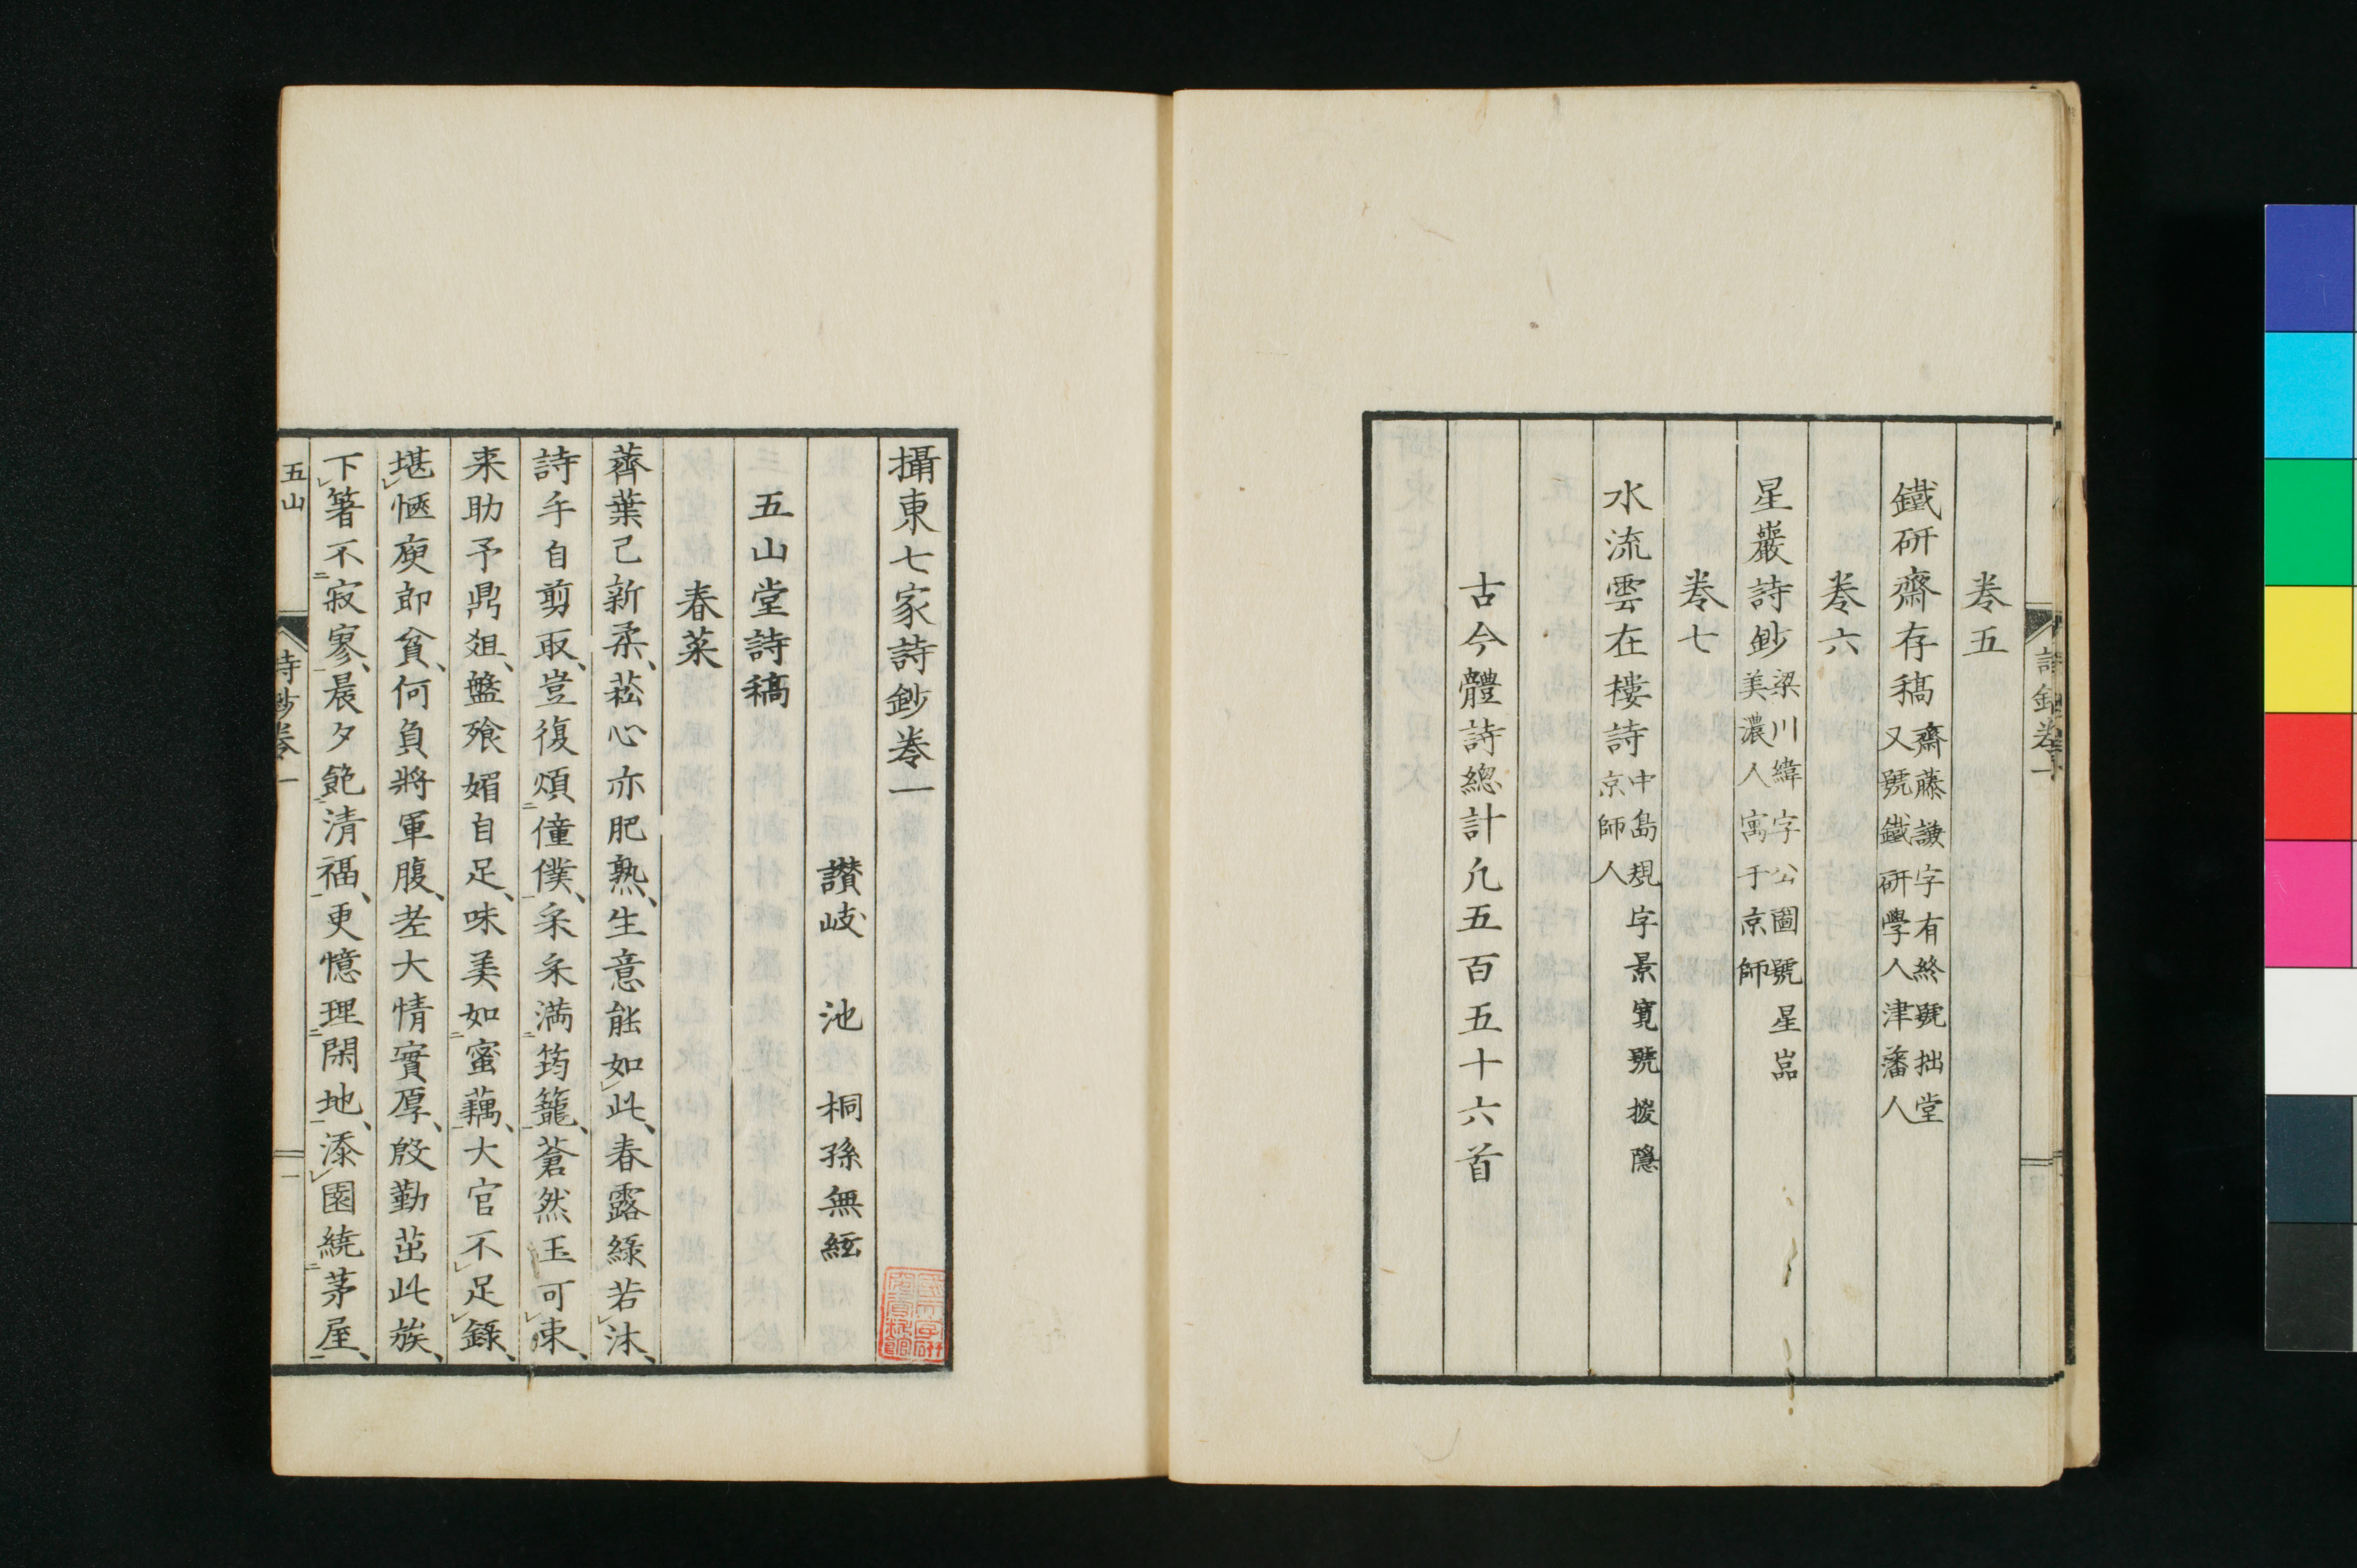 卷五
鐵研齋存稿
齋藤謙字有終號拙堂
又號鐵研學人津藩人
卷六
星巖詩鈔
梁川緯字公圖號星巖
美濃人寓于京師
卷七
水流雲在樓詩
中島規字景寬號椶隱
京師人
古今體詩總計凡五百五十六首
攝東七家詩鈔卷一
讃岐 池 桐孫無絃
五山堂詩稿
春菜
薺葉已新柔、菘心亦肥熟、生意能如此、春露綠若沐、
詩手自剪取、豈復煩僮僕、采采滿筠籠、蒼然玉可束、
来助予鼎俎、盤飧媚自足、味美如蜜藕、大官不足錄、
堪愜庾郎貧、何負將軍腹、差大情實厚、殷勤茁此族、
下箸不寂寥、晨夕飽清福、更憶理閑地、添園繞茅屋、
五山
詩鈔卷一
一